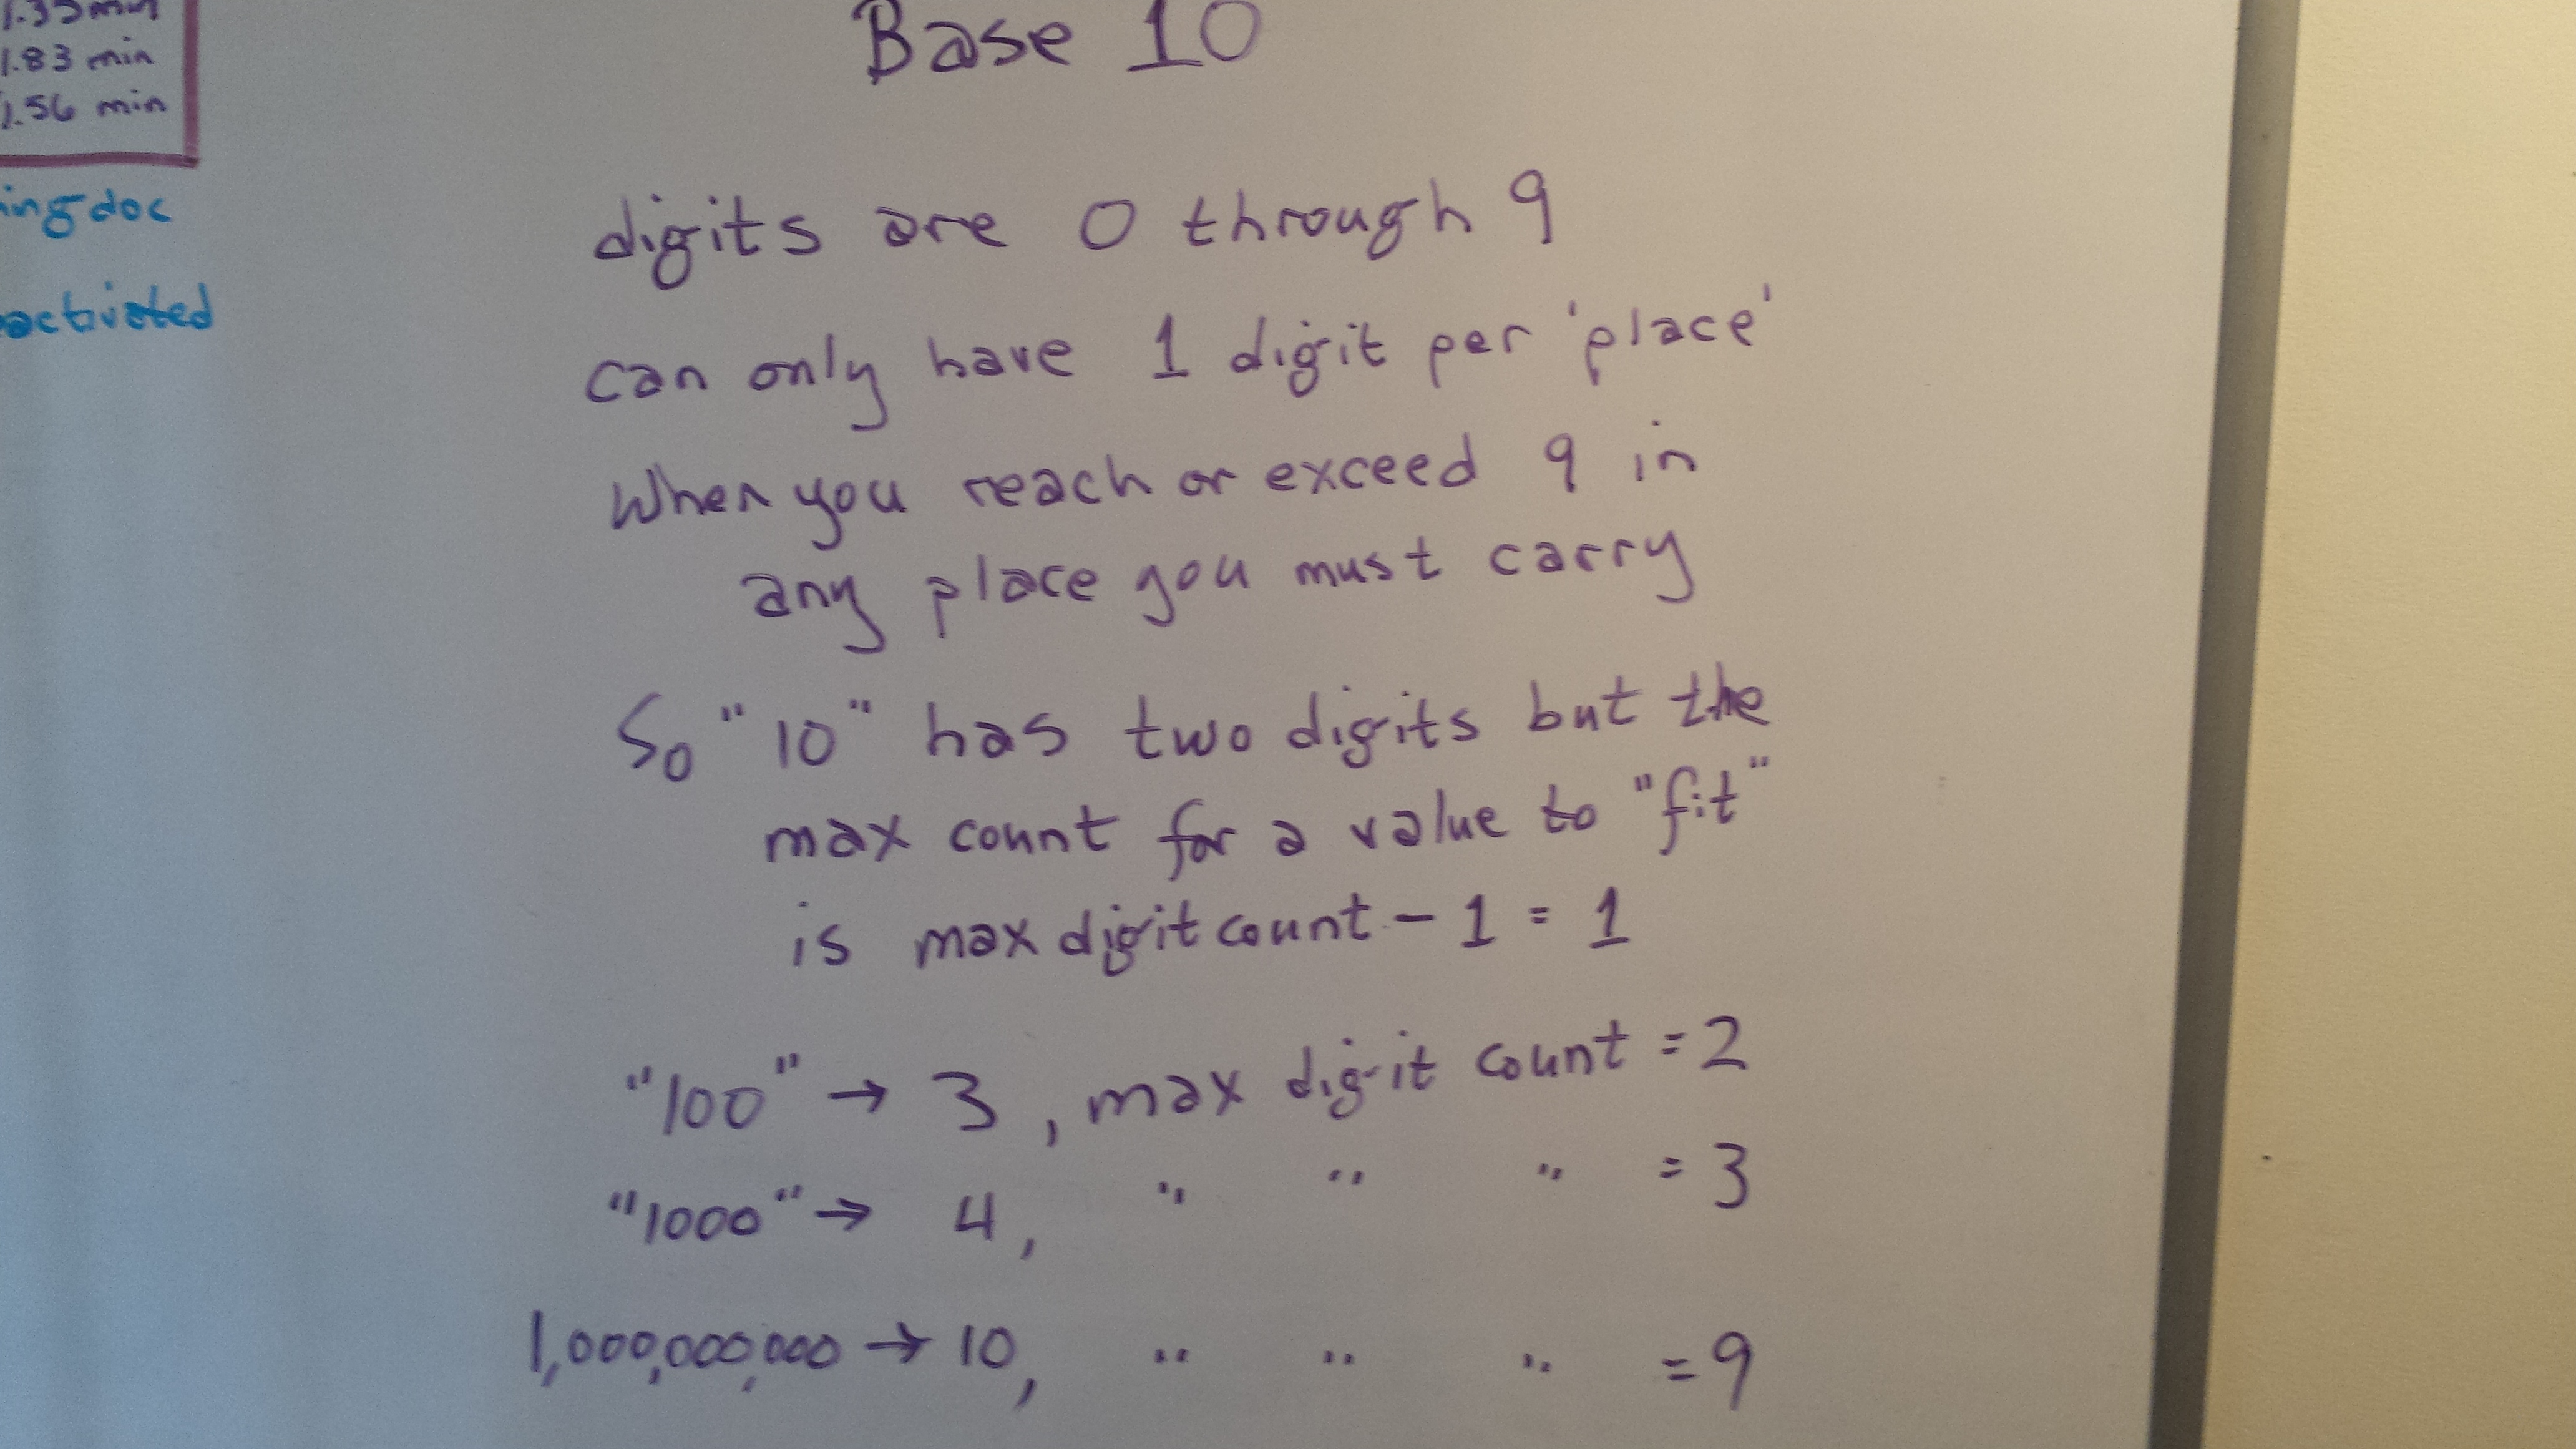 1.83 min
1.56 min
activated
Base 10
digits are 0 through 9
can only have 1 digit per 'place'
When you reach or exceed 9 in
any place you must carry
So "10" has two digits but the
max count for a value to "fit"
is max digit count - 1 = 1
"100" → 3, max digit count = 2
"1000" → 4, " " " = 3
1,000,000,000 → 10, " " " = 9